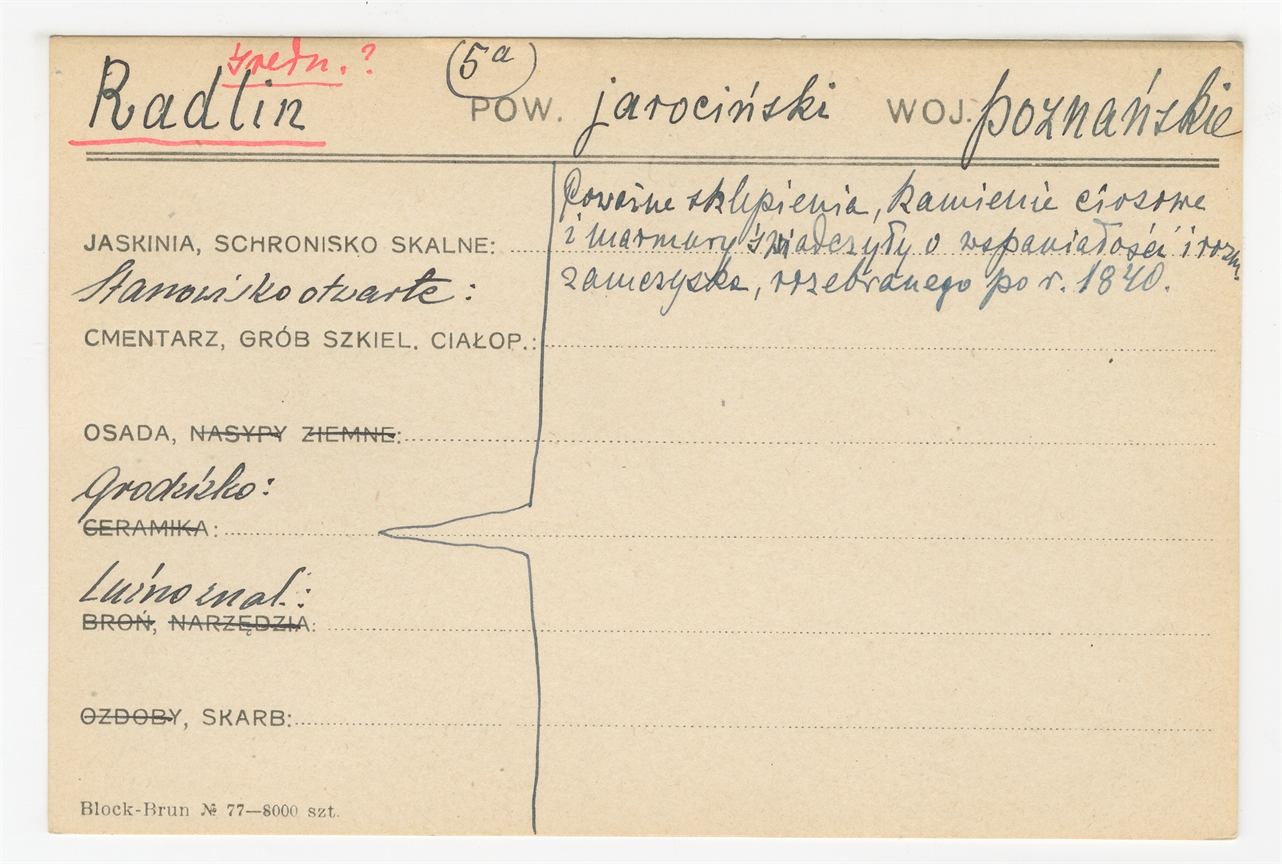 średn. ?
(5a)
Radlin POW. jarociński WOJ. poznańskie
Poważne sklepienia, kamienie ciosowe
JASKINIA, SCHRONISKO SKALNE:
i marmury świadczyły o wspaniałości i rozm.
Stanowisko otwarte:
zamczyska, rozebranego po r. 1840.
CMENTARZ, GRÓB SZKIEL. CIAŁOP.:
OSADA, NASYPY ZIEMNE:
Grodzisko:
CERAMIKA:
Luźno znal.:
BROŃ, NARZĘDZIA:
OZDOBY, SKARB:
Block-Brun № 77—8000 szt.